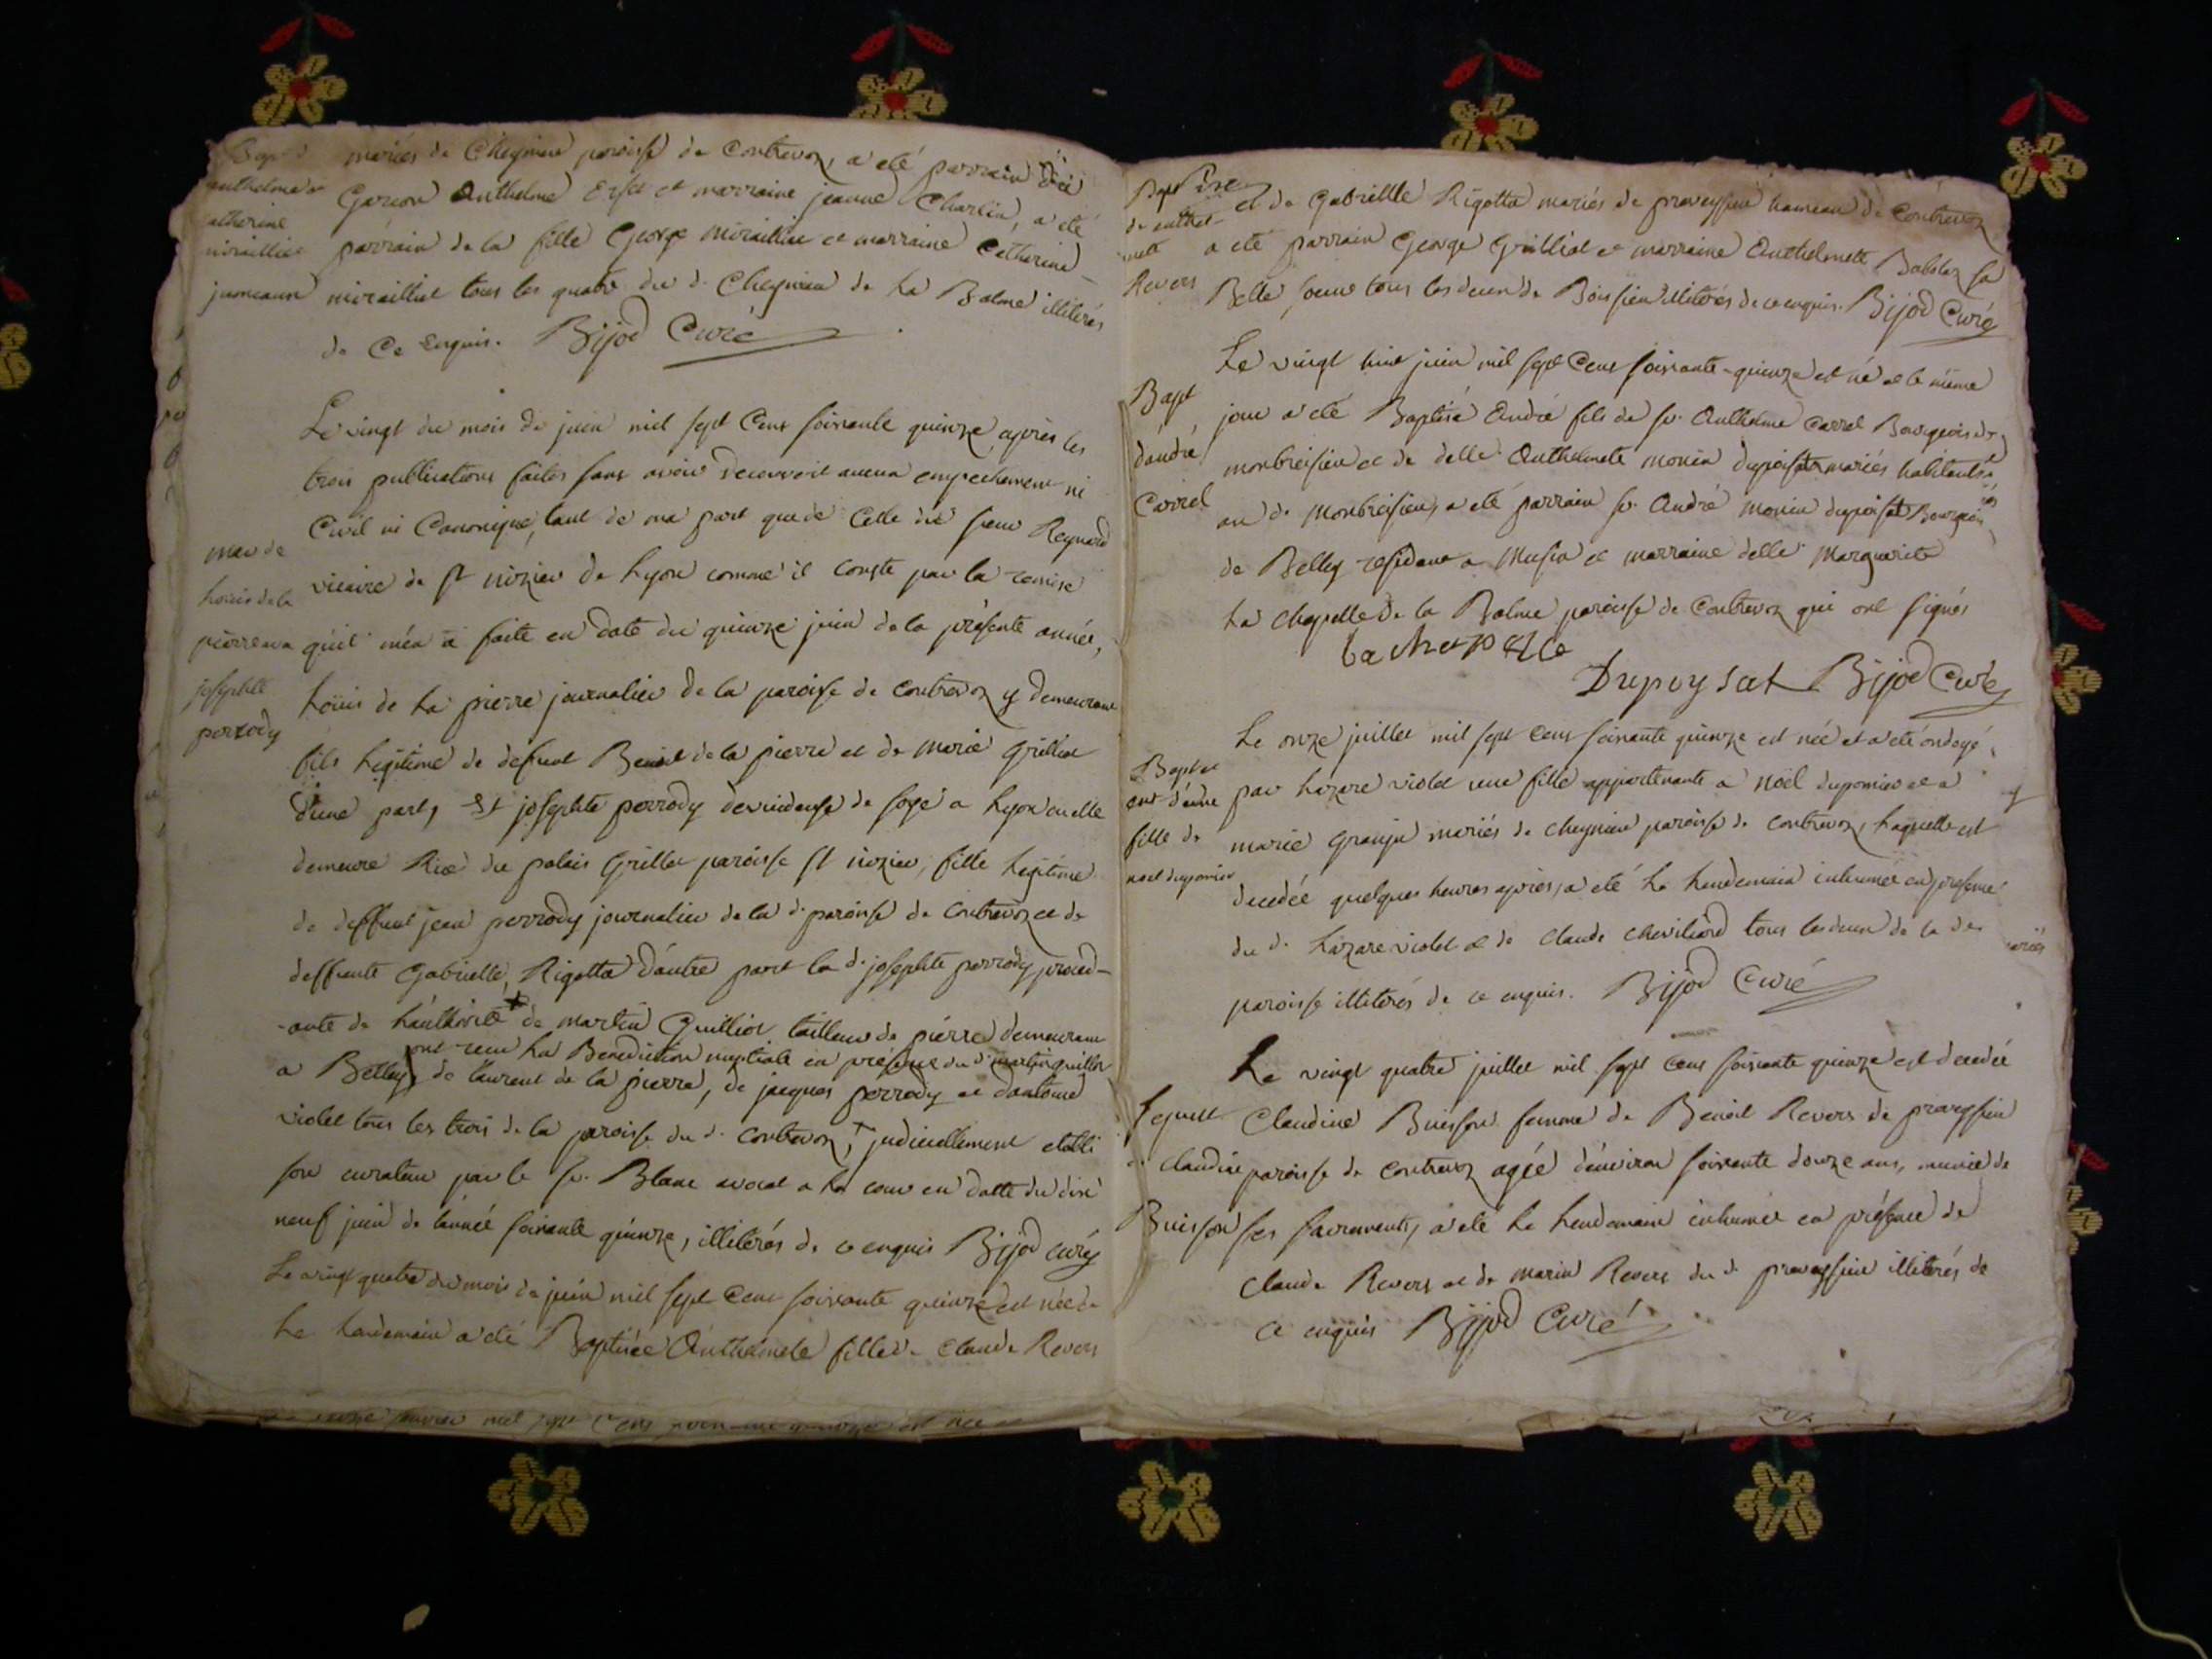 Bapt d
anthelme et
catherine
miraillier
jumeaux
mariés de Cheignieu paroisse de Contrevoz, a eté parrain du
Garcon Anthelme Erset et marraine jeanne Charlin, a eté
parrain de la fille George miraillier et marraine Catherine
miraillier tous les quatre du d. Cheignieu de La Balme illiterés
de Ce Enquis. Bijod Curé
mar de
Louis de la
pierre avec
josephte
perrody
Le vingt du mois de juin mil sept Cens soixante quinze, après les
trois publications faites sans avoir decouvert aucun empechement ni
Civil ni Canonique, tant de ma part que de Celle du sieur Reynard
vicaire de St nizier de Lyon comme il conste par la remise
qu'il m'en a faite en date du quinze juin de la présente année,
Loüis de La pierre journalier de la paroisse de Contrevoz y demeurant
fils Legitime de defunt Benoit de la pierre et de Marie Grilliet
d'une part, Et josephte perrody devideuse de soye a Lyon ou elle
demeure Rüe du palais Grillet paroisse St nizier, fille Legitime
de deffunt jean perrody journalier de la d. paroisse de Contrevoz et de
deffunte Gabrielle Rigotta d'autre part la d. josephte perrody proced-
-ante de L'authorité + de martin Guilliot tailleur de pierre demeurant
a Belley, ont recu La Benediction nuptiale en présence du d. martin Guilliot
de laurent de la pierre, de jacques perrody et d'antoine
violet tous les trois de la paroisse du d. Contrevoz, + judiciellement etabli
son curateur par le sr. Blanc avocat a la cour en datte du dix
neuf juin de l'année soixante quinze, illiterés de ce enquis Bijod curé
Le vingt quatre du mois de juin mil sept Cens soixante quinze est née et
Le Lendemain a eté Baptisée Anthelmete fille de Claude Revers
Bapt
de anthel-
mete
Revers
et de Gabrielle Rigotta mariés de preveyssieu hameau de Contrevoz
a eté parrain George Grilliet et marraine Anthelmette Babolaz sa
Belle soeur tous les deux de Boissieu illiterés de ce enquis. Bijod Curé
Bapt
d'andré
Carrel
Le vingt huit juin mil sept Cens soixante-quinze est né et le même
jour a eté Baptisé André fils de sr. Anthelme Carrel Bourgeois de
montbreisieu et de delle Anthelmete monin dupoisat mariés habitants
au d. Montbreisieu, a eté parrain sr. André monin dupoisat Bourgeois
de Belley residant a Musin et marraine delle Marguerite
La Chapelle de la Balme paroisse de Contrevoz qui ont signés
La chapelle
Dupuysat Bijod Curé
Bapt et
ent d'une
fille de
noel duponier
Le onze juillet mil sept cens soixante quinze est née et a eté ondoyé
par Lazare violet une fille appartenante a Noël duponier et a
marie Granju mariés de cheignieu paroisse de contrevoz, Laquelle est
decedée quelques heures apries, a eté Le Lendemain inhumée en presence
du d. Lazare violet et de Claude chevillard tous les deux de la de
paroisse illiterés de ce enquis. Bijod Curé
sepult
Claudine
Buisson
Le vingt quatre juillet mil sept cens soixante quinze est decedée
Claudine Buisson femme de Benoit Revers de preveyssieu
paroisse de Contrevoz agée d'environ soixante douze ans, munie de
ses sacrements, a eté Le Lendemain inhumée en présence de
Claude Revers et de marin Revers du d. preveyssieu illiterés de
ce enquis Bijod Curé